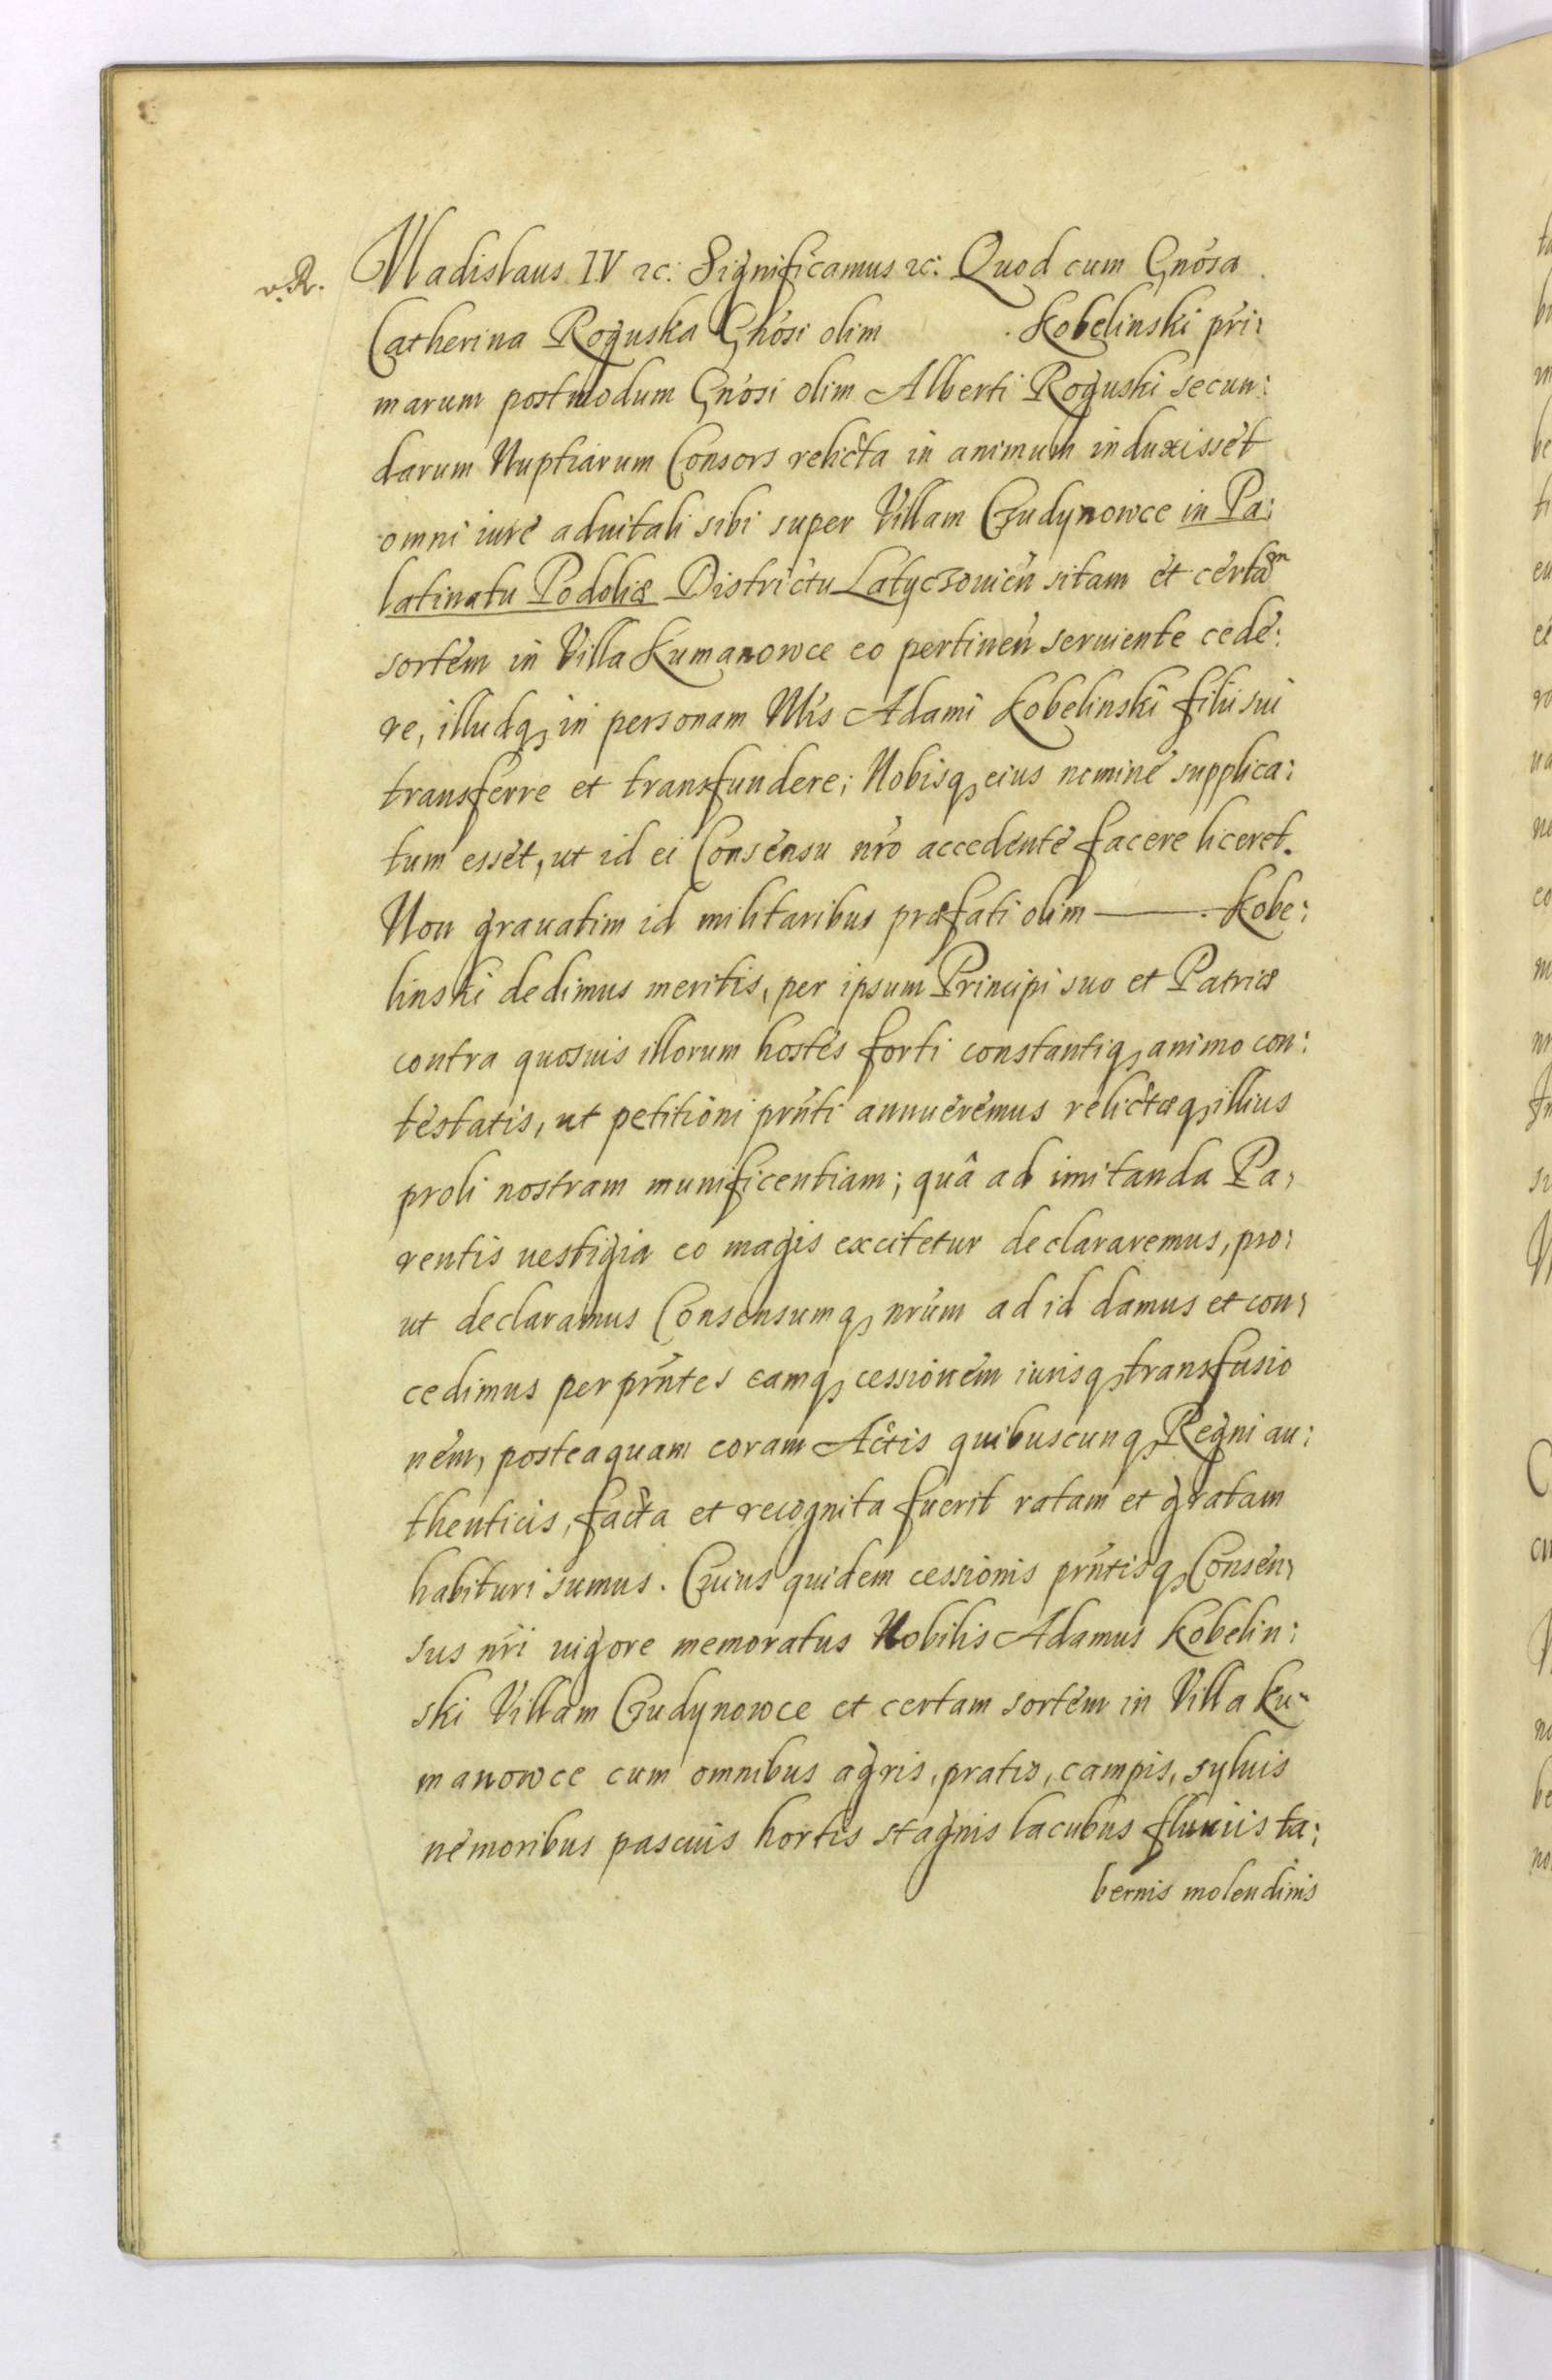 v. R. Vladislaus IV ꝛc: Significamus ꝛc: Quod cum Gnósa
Catherina Roguska Gnósi olim . Kobelinski pri:
marum postmodum Gnósi olim Alberti Roguski secun:
darum Nuptiarum Consors relicta in animum induxisset
omni iure aduitali sibi super Villam Gudynowce in Pa:
latinatu Podoliæ Districtu Latyczouień sitam et certam
sortem in Villa Kumanowce eo pertineń seruiente cede:
re, illudq, in personam Nlis Adami Kobelinski filii sui
transferre et transfundere; Nobisq, eius nomine supplica:
tum esset, ut id ei Consensu nró accedente facere liceret.
Non grauatim id militaribus præfati olim ——— Kobe:
linski dedimus meritis, per ipsum Principi suo et Patriæ
contra quosuis illorum hostes forti constantiq, animo con:
testatis, ut petitioni prńti annueremus relictæq, illius
proli nostram munificentiam; quâ ad imitanda Pa,
rentis uestigia eo magis excitetur declararemus, pro:
ut declaramus Consensumq, nrúm ad id damus et con,
cedimus per prńtes eamq, cessionem iurisq, transfusio
nem, posteaquam coram Actis quibuscunq, Regni au:
thenticis, facta et recognita fuerit ratam et gratam
habituri sumus. Cuius quidem cessionis prńtisq, Consen,
sus nrí uigore memoratus Nobilis Adamus Kobelin:
ski Villam Gudynowce et certam sortem in Villa Ku-
manowce cum omnibus agris, pratis, campis, syluis
nemoribus pascuis hortis stagnis lacubus fluuiis ta:
bernis molendinis